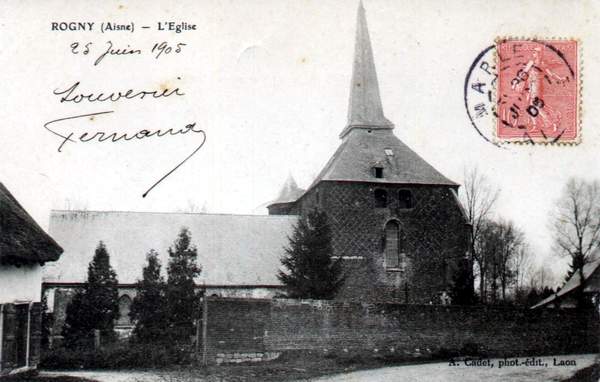 ROGNY (Aisne) — L'Eglise
25 Juin 1905
Souvenir
Fernand
MARLE
A. Cadet, phot.-édit., Laon